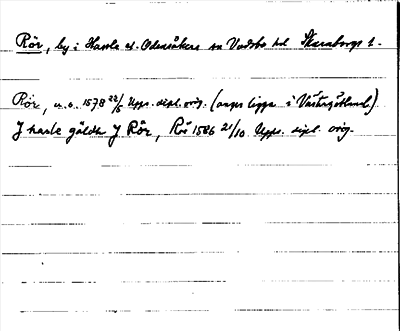 Rör, by i Hassle el. Odensåkers sn Vadsbo hd Skaraborgs l.
Rör, u.o. 1578 22/5 Upps. dipl. orig. (anges ligga i Västergötland)
J harle gälda J Rör, Rör 1586 21/10 Upps. dipl. orig.